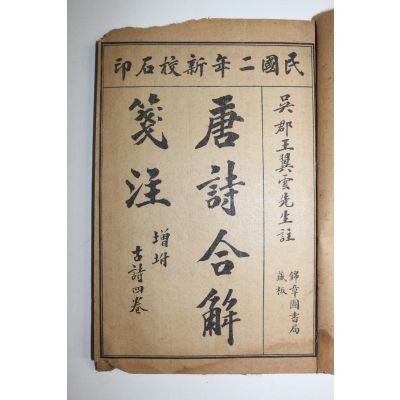 民國二年新校石印
吳郡王翼雲先生註
唐詩合解
箋注
增坿
古詩四卷
錦章圖書局
藏板